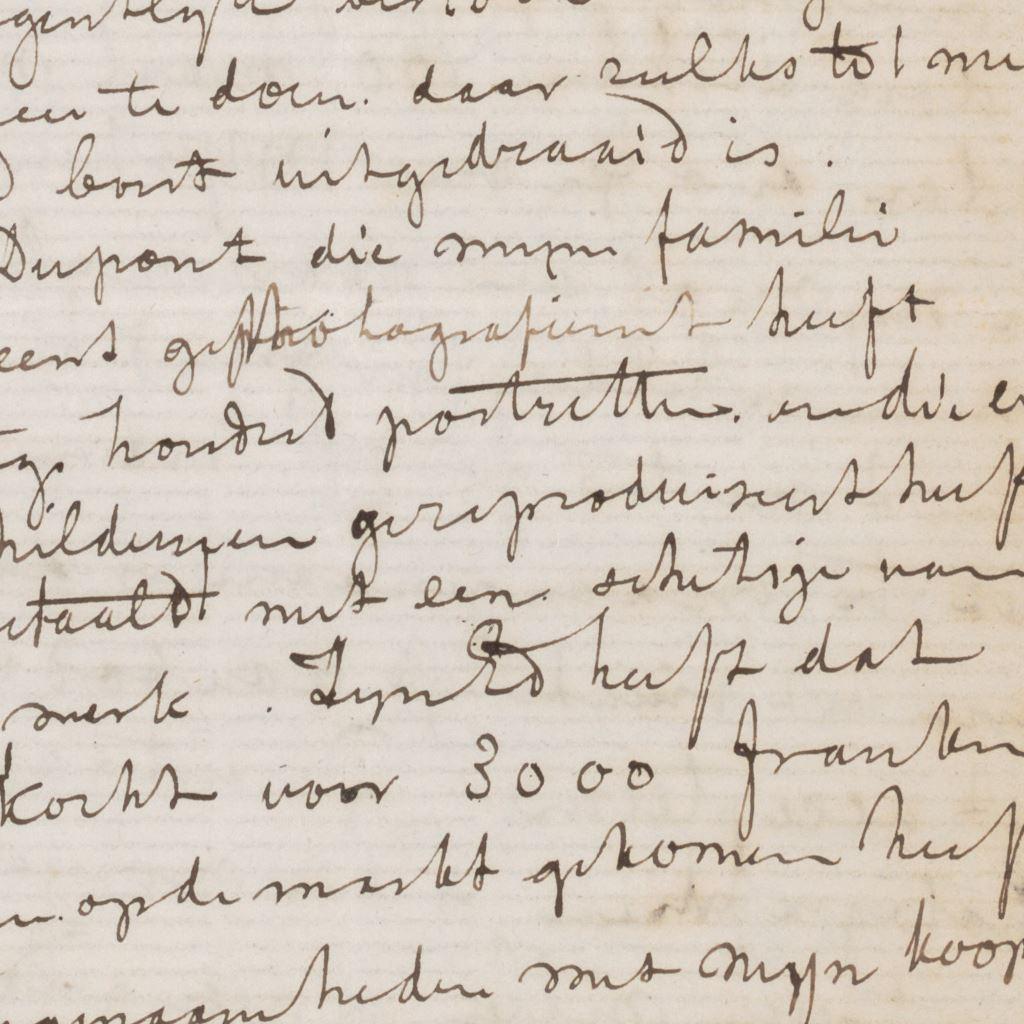 te doen. daar zulks tot
bout uitgedraaid is.
Dupont die mijn familie
gephotografieert heeft
honderd portretten. en die
gereproduiseert heeft
betaald met een. schetsje van
werk. Zijn Ed heeft dat
kocht voor 3000 franken
op de markt gekomen heeft
heden met mijn koop